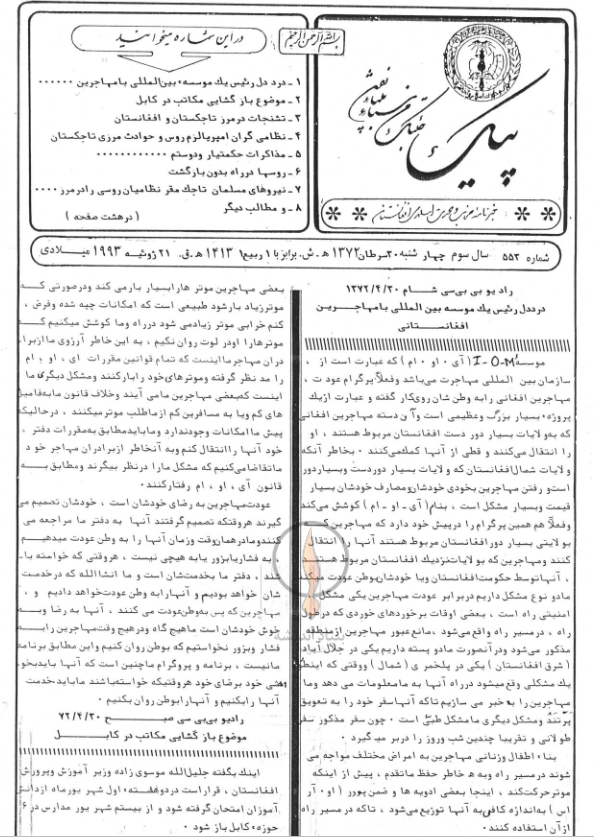 بسم الله الرحمن الرحیم
در این شماره میخوانید
۱ - درد دل رئیس یك موسسه، بین‌المللی با مهاجرین ۰۰۰۰۰۰
۲ - موضوع باز گشایی مکاتب در کابل
۳ - تشنجات در مرز تاجکستان و افغانستان
۴ - نظامی گران امپریالزم روس و حوادث مرزی تاجکستان
۵ - مذاکرات حکمتیار و دوستم ۰۰۰۰۰۰۰۰۰۰۰
۶ - روسها در راه بدون بازگشت
۷ - نیروهای مسلمان تاجك مقر نظامیان روسی را در مرز ۰۰۰۰
۸ - و مطالب دیگر
( در هشت صفحه )
پیک
شماره ۵۵۲ سال سوم چهار شنبه ۳۰ سرطان ۱۳۷۲ ه‍.ش. برابر با ۱ ربیع۱ ۱۴۱۳ ه‍.ق. ۲۱ ژوئیه ۱۹۹۳ میلادی
رادیو بی بی سی شام ۱۳۷۲/۴/۲۰
درد دل رئیس یك موسسه بین المللی با مهاجرین
افغانستانی
موسسه I-O-M ( آی ۰ او ۰ ام ) که عبارت است از ،
سازمان بین المللی مهاجرت می‌باشد و فعلآ پرگرام عودت ،
مهاجرین افغانی را به وطن شان روی کار گفته و عبارت از یك
پروژه، بسیار بزرگ و عظیمی است و آن دسته مهاجرین افغانی
که به ولایات بسیار دور دست افغانستان مربوط هستند ، او
را انتقال می‌کنند و قطی از آنها کمك می‌کنند ۰ بخاطر آنکه
ولایات شمال افغانستان که ولایات بسیار دور دست و بسیار دور
است و رفتن مهاجرین بخودی خودشان و مصارف خودشان بسیار
قیمت و بسیار مشکل است ، بنام ( آی ـ او ـ ام ) کوشش می‌کند
و فعلآ هم همین پرگرام را در پیش خود دارد که مهاجرین که
بو لایتی بسیار دور افغانستان مربوط هستند آنها را انتقال
کنند و مهاجرین که بولایات نزدیك افغانستان مربوط هستند
، آنها توسط حکومت افغانستان و یا خودشان بوطن عودت میکنند
ما دو نوع مشکل داریم در برابر عودت مهاجرین یکی مشکل
امنیتی راه است ، بعضی اوقات برخوردهای خوردی که در طول
راه ، در مسیر راه واقع می‌شود ، مانع عبور مهاجرین از منطقه
مذکور می‌شود و در آنصورت ما دو پسته داریم یکی در جلال آباد
( شرق افغانستان ) یکی در پلخمری ( شمال ) و وقتی که اینطور
یك مشکلی وقع میشود در راه آنها به ما معلومات می دهد و ما
مهاجرین را به خبر می سازیم تا که آنها سفر خود را به تعویق
برتند و مشکل دیگری ما مشکل طبی است ۰ چون سفر مذکور سفر
طولانی و تقریبا چندین شب وروز را در بر میگیرد ۰
بناء اطفال و زنانی مهاجرین به امراض مختلف مواجه می
شوند در مسیر راه و به خاطر حفظ ماتقدم ، پیش از اینکه
موتر حرکت کند ، اینجا بعضی ادویه ها و ضمن پور ( او ۰ آر
اس ) به اندازه کافی به آنها توزیع می‌شود ، تا که در مسیر راه
از آن استفاده کنند ۰
بعضی مهاجرین موتر هارا بسیار بار می کند و در صورتی که
موتر زیاد بار شود طبیعی است که امکانات چپه شده و فرض ،
کنم خرابی موتر زیاد می شود در راه و ما کوشش میکنیم که
موتر هارا اودر لوت روان نکیم ، به این خاطر آرزوی ما از برا
دران مهاجر ما اینست که تمام قوانین مقررات ای ، او ، ام
را مد نظر گرفته و موترهای خود را بار کنند و مشکل دیگری ما
اینست که بعضی مهاجرین ما می آیند و خلاف قانون ما به فامیل
های کم و یا به مسافرین کم از ما طلب موتر میکنند ، در حالیکه
پیش ما امکانات وجود ندارد و ما باید مطابق به مقررات دفتر ،
خود آنها را انتقال کنم و به آنخاطر از برادران مهاجر خود
ما تقاضا می‌کنیم که مشکل ما را در نظر بیگرند و مطابق به
قانون آی ، او ، ام رفتار کنند ۰
عودت مهاجرین به رضای خودشان است ، خودشان تصمیم می
گیرند هر وقتکه تصمیم گرفتند آنها به دفتر ما مراجعه می
کنند و ما در همان وقت و زمان آنها را به وطن عودت میدهیم
به فشار یا بزور یا به هیچی نیست ، هر وقتی که خوامته با
شند ، دفتر ما بخدمت شان است و ما انشاالله که در خدمت
شان خواهد بودیم و آنها را به وطن عودت خواهد دادیم و ،
مهاجرین که پس به وطن عودت می کنند ، آنها به رضا و به
خوش خودشان است ما هیچ گاه و در هیچ وقت مهاجرین را به
فشار و بزور نخواستیم که بوطن روان کنیم و این مطابق برنامه
ما نیست ، برنامه و پروگرام ما چنین است که آنها باید بخو
شی خود برضای خود هر وقتیکه خواسته باشند ما باید خدمت
آنها را بکنیم و آنها را بوطن روان بکنیم ۰
رادیو بی‌بی سی صبح ۷۲/۴/۳۰
موضوع باز گشایی مکاتب در کابل
اینك بگفته جلیل الله موسوی زاده وزیر آموزش و پرورش
افغانستان ، قرار است در دو هفته، اول شهر یور ماه از دانش
آموزان امتحان گرفته شود و از بیستم شهر یور مدارس در ۱۶
حوزه، کابل باز شود ۰